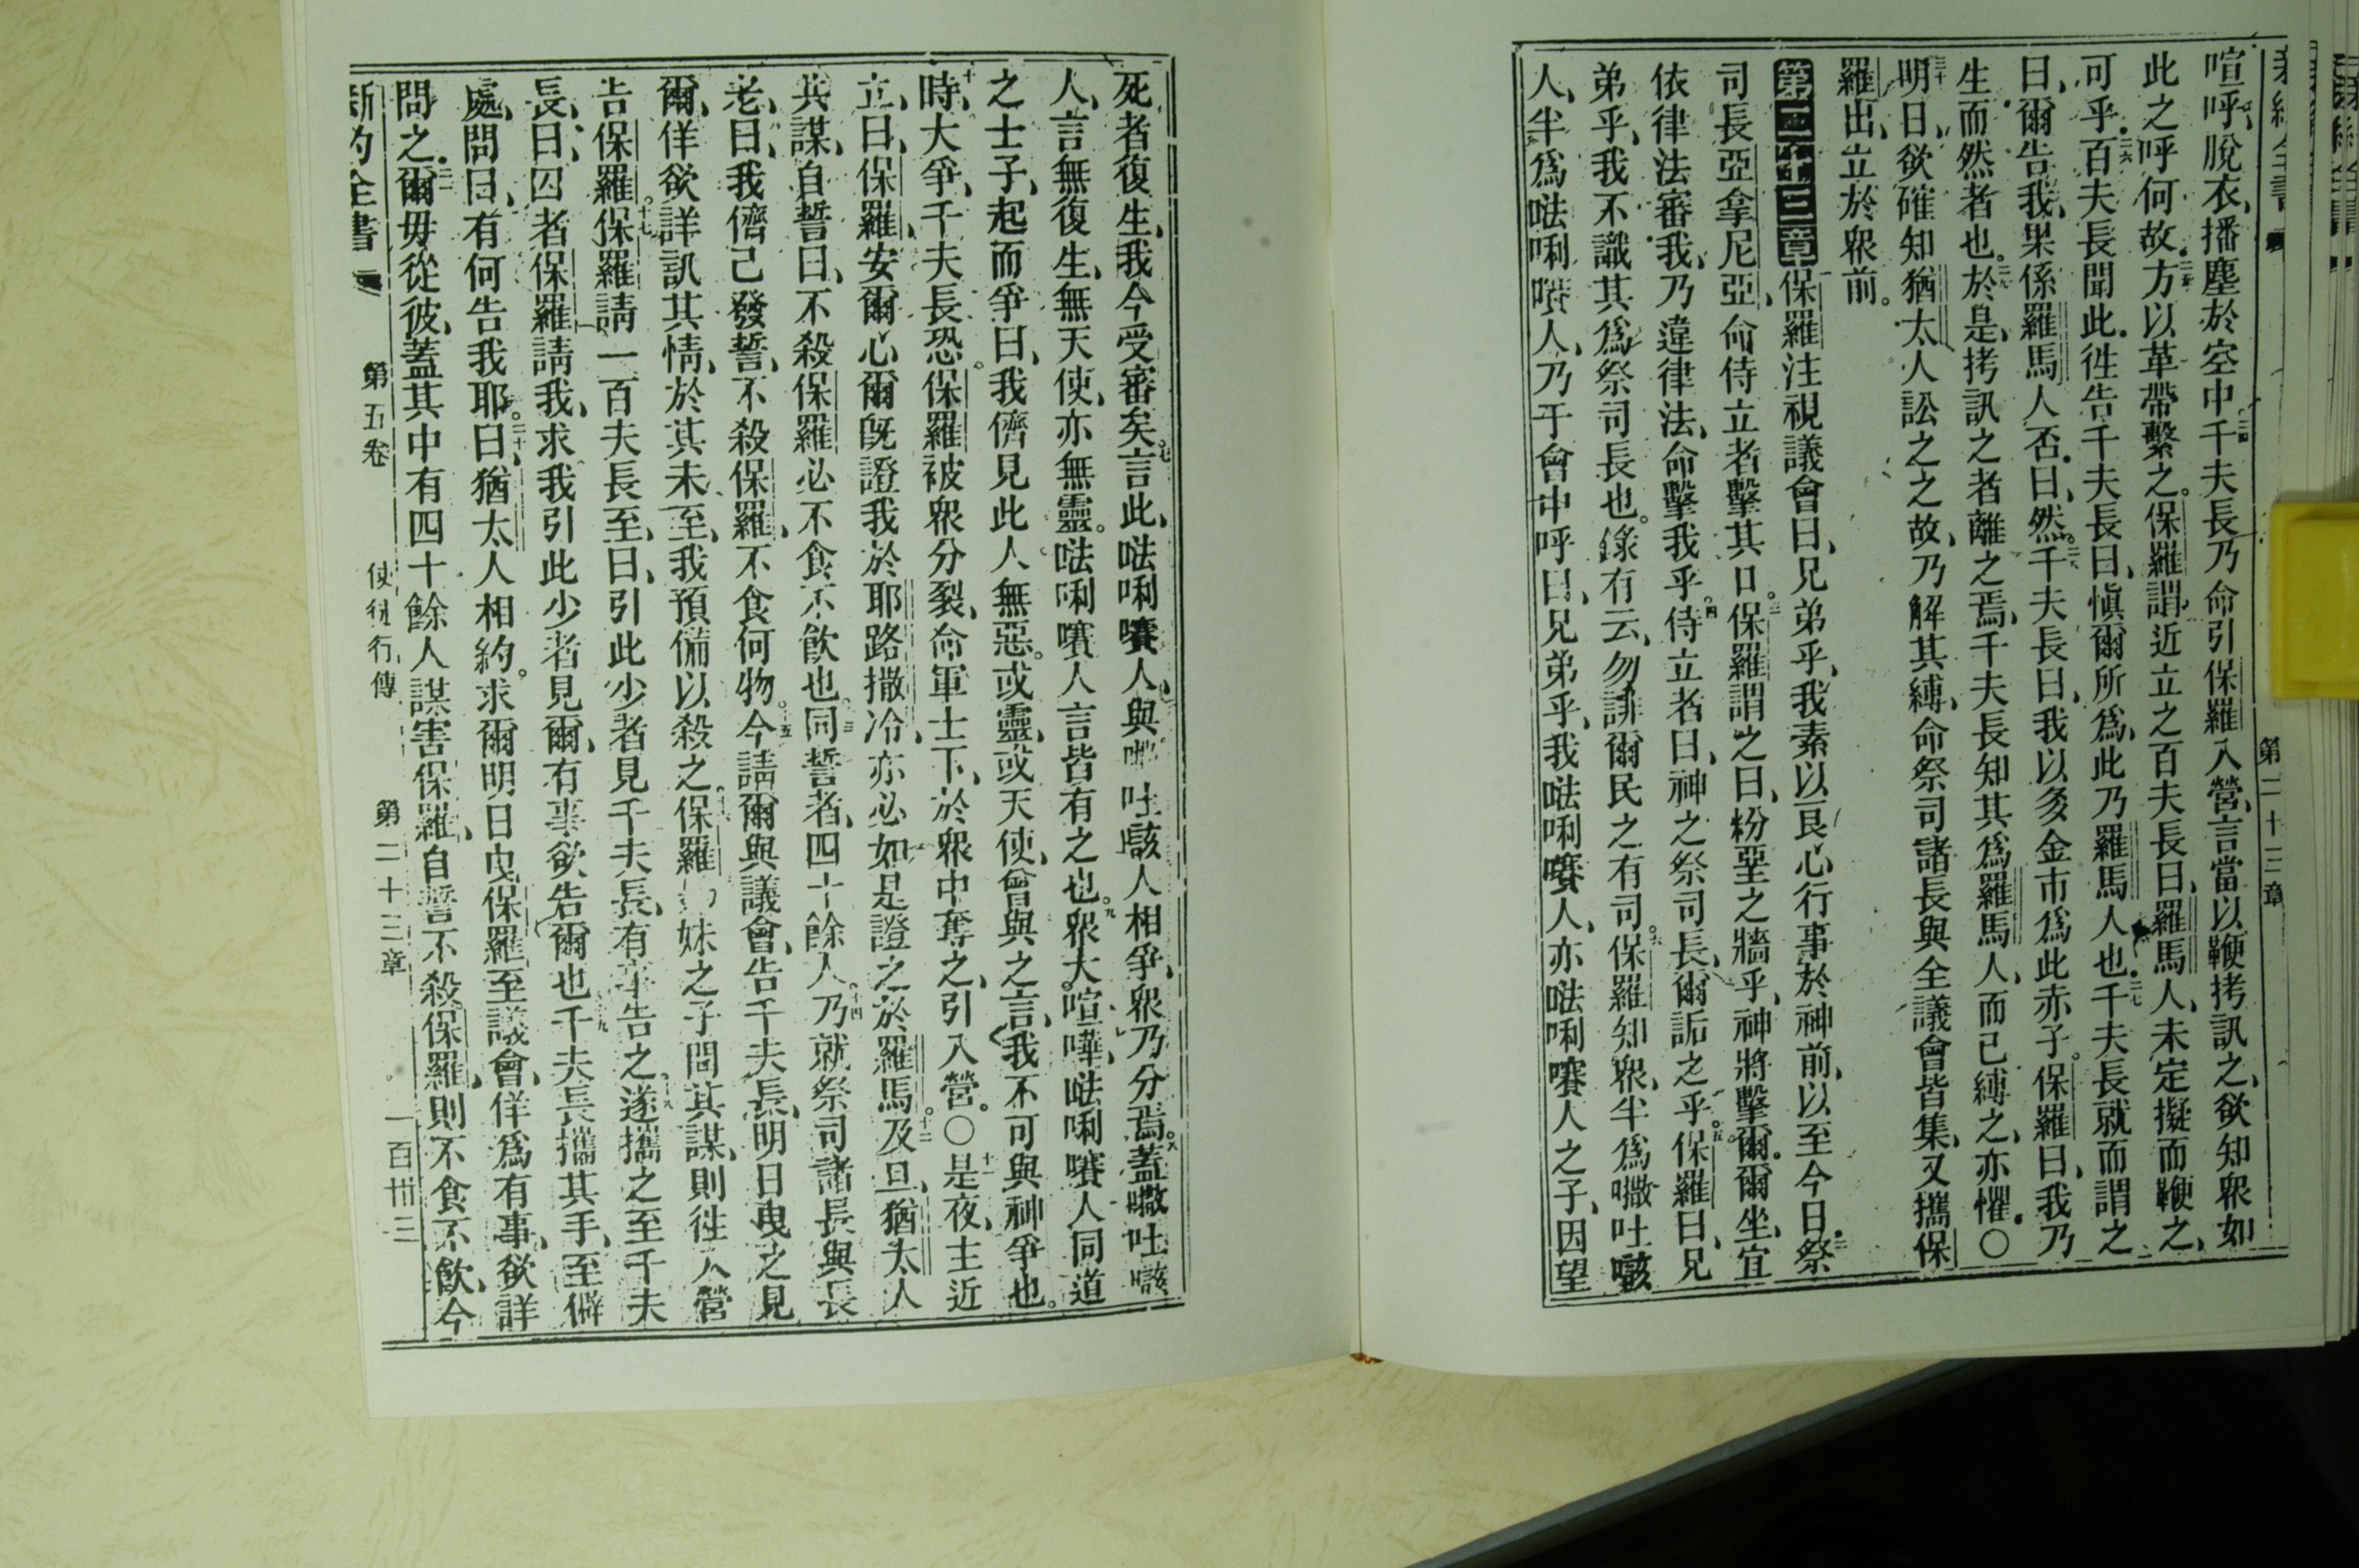 第二十三章
喧呼、脫衣、播塵於空中千夫長乃命引保羅入營、言當以鞭拷訊之、欲知眾如
此之呼何故。方以革帶繫之。保羅謂近立之百夫長曰、羅馬人、未定擬而鞭之、
可乎。百夫長聞此、徃告千夫長曰、愼爾所爲、此乃羅馬人也。千夫長就而謂之
曰、爾告我、果係羅馬人否。曰、然。千夫長曰、我以多金市爲此赤子。保羅曰、我乃
生而然者也。於是、拷訊之者離之焉、千夫長知其爲羅馬人、而已縛之、亦懼。〇
明日、欲確知猶太人訟之之故、乃解其縛、命祭司諸長與全議會皆集、又攜保
羅出、立於眾前。
第二十三章保羅注視議會曰、兄弟乎、我素以良心行事於神前、以至今日。祭
司長亞拿尼亞、命侍立者擊其口。保羅謂之曰、粉堊之牆乎、神將擊爾。爾坐、宜
依律法審我、乃違律法、命擊我乎。侍立者曰、神之祭司長、爾詬之乎。保羅曰、兄
弟乎、我不識其爲祭司長也。錄有云、勿誹爾民之有司。保羅知眾、半爲㘔吐㗢
人、半爲㕹唎㘔人、乃于會中呼曰、兄弟乎、我㕹唎㘔人、亦㕹唎㘔人之子、因望
死者復生、我今受審矣。言此、㕹唎㘔人與㘔吐㗢人相爭、眾乃分焉。蓋㘔吐㗢
人、言無復生、無天使、亦無靈。㕹唎㘔人言皆有之也。眾大喧嘩、㕹唎㘔人同道
之士子、起而爭曰、我儕見此人無惡。或靈、或天使、曾與之言、我不可與神爭也。
時、大爭、千夫長恐保羅被眾分裂、命軍士下、於眾中奪之、引入營。〇是夜、主近
立、曰、保羅安爾心爾旣證我於耶路撒冷、亦必如是證之於羅馬。及旦、猶太人
共謀、自誓曰、不殺保羅必不食不飮也。同誓者、四十餘人。乃就祭司諸長與長
老、曰、我儕己發誓、不殺保羅、不食何物。今請爾與議會、告千夫長、明日曳之見
爾、佯欲詳訊其情、於其未至、我預備以殺之。保羅 妹之子聞其謀、則徃入營
告保羅。保羅請一百夫長至、曰、引此少者見千夫長、有事告之。遂攜之至千夫
長、曰、囚者保羅請我、求我引此少者見爾、有事欲告爾也千夫長攜其手、至僻
處、問曰、有何告我耶。曰、猶太人相約。求爾明日曳保羅至議會、佯爲有事、欲詳
問之。爾毋從彼、蓋其中有四十餘人謀害保羅、自誓不殺保羅、則不食不飮、今
新約全書 第五卷 使徒行傳 第二十三章 一百卌三